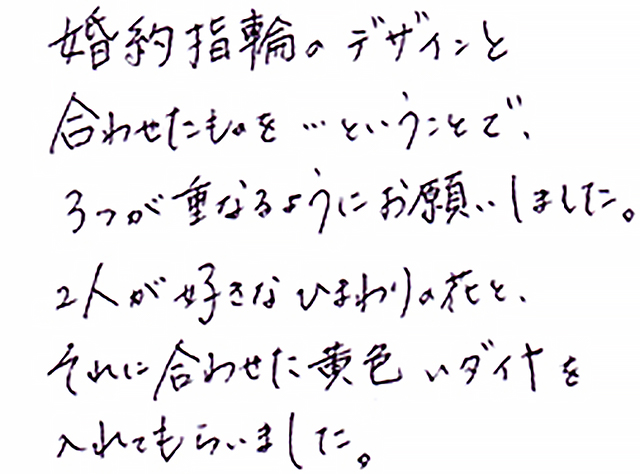 婚約指輪のデザインと
合わせたものを…ということで、
3つが重なるようにお願いしました。
2人が好きなひまわりの花と、
それに合わせた黄色いダイヤを
入れてもらいました。